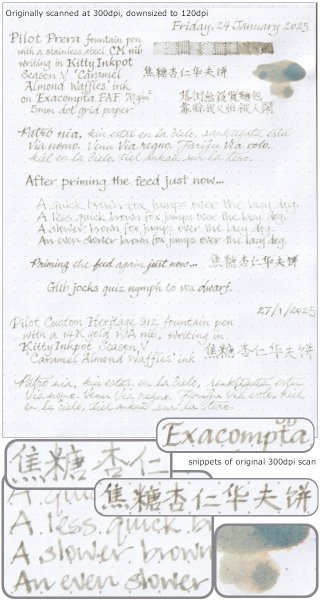 Originally scanned at 300dpi, downsized to 120dpi
Friday, 24 January 2025
Pilot Prera fountain pen
with a stainless steel CM nib
writing in Kitty Inkpot
Season V “Caramel
Almond Waffles” ink
on Exacompta FAF 70 g/m²
5mm dot grid paper
焦糖杏仁华夫饼
Patro nia, kiu estas en la ĉielo, sanktigata estu
Via nomo. Venu Via regno. Fariĝu Via volo,
kiel en la ĉielo, tiel ankaŭ sur la tero.
After priming the feed just now...
A quick brown fox jumps over the lazy dog.
A less quick brown fox jumps over the lazy dog.
A slower brown fox jumps over the lazy dog.
An even slower brown fox jumps over the lazy dog.
Priming the feed again just now... 焦糖杏仁华夫饼
Glib jocks quiz nymph to vex dwarf.
27/1/2025
Pilot Custom Heritage 912 fountain pen
with a 14K gold WA nib, writing in
Kitty Inkpot Season V
“Caramel Almond Waffles” ink 焦糖杏仁华夫饼
Patro nia, kiu estas en la ĉielo, sanktigata estu
Via nomo. Venu Via regno. Fariĝu Via volo, kiel
en la ĉielo, tiel ankaŭ sur la tero.
Exacompta
snippets of original 300dpi scan
焦糖杏仁
焦糖杏仁华夫饼
A quic
A less quick b
A slower brown
An even slower